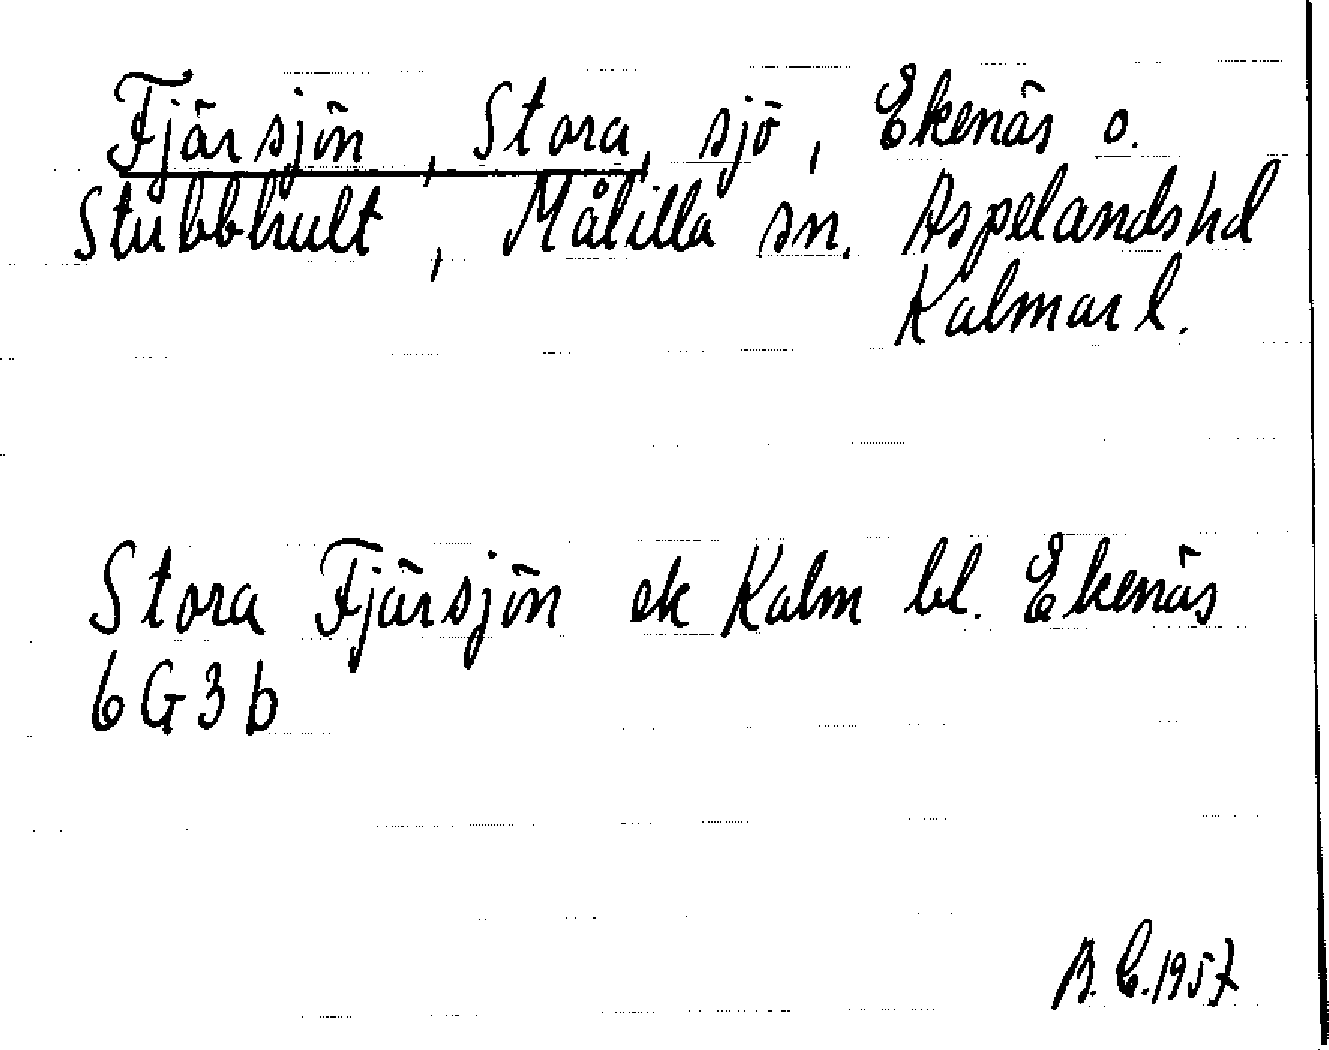 Fjärsjön, Stora, sjö, Ekenäs o.
Stubbhult, Målilla sn. Aspelands hd
Kalmar l.
Stora Fjärsjön ek Kalm bl. Ekenäs
6G3b
A.C.1957